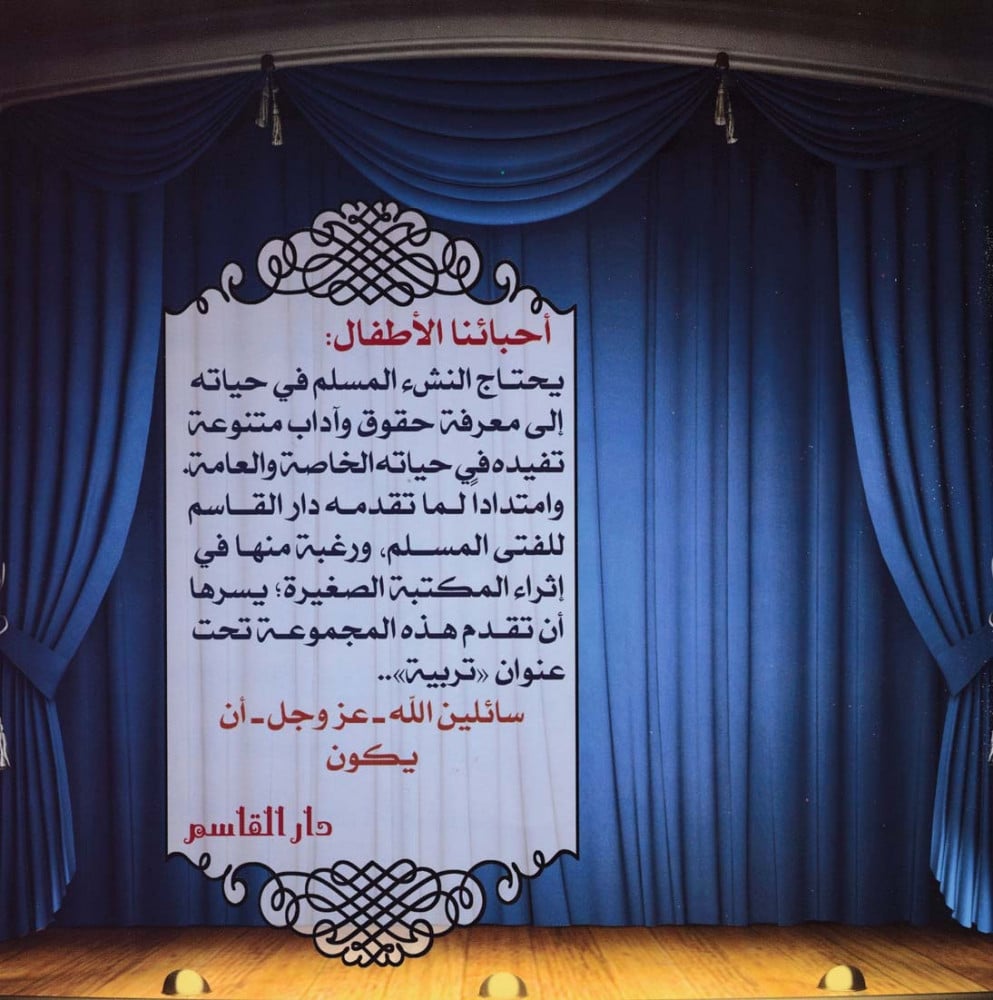 أحبائنا الأطفال:
يحتاج النشء المسلم في حياته
إلى معرفة حقوق وآداب متنوعة
تفيده في حياته الخاصة والعامة.
وامتداداً لما تقدمه دار القاسم
للفتى المسلم، ورغبة منها في
إثراء المكتبة الصغيرة؛ يسرها
أن تقدم هذه المجموعة تحت
عنوان «تربية»..
سائلين الله - عز وجل - أن
يكون
دار القاسم